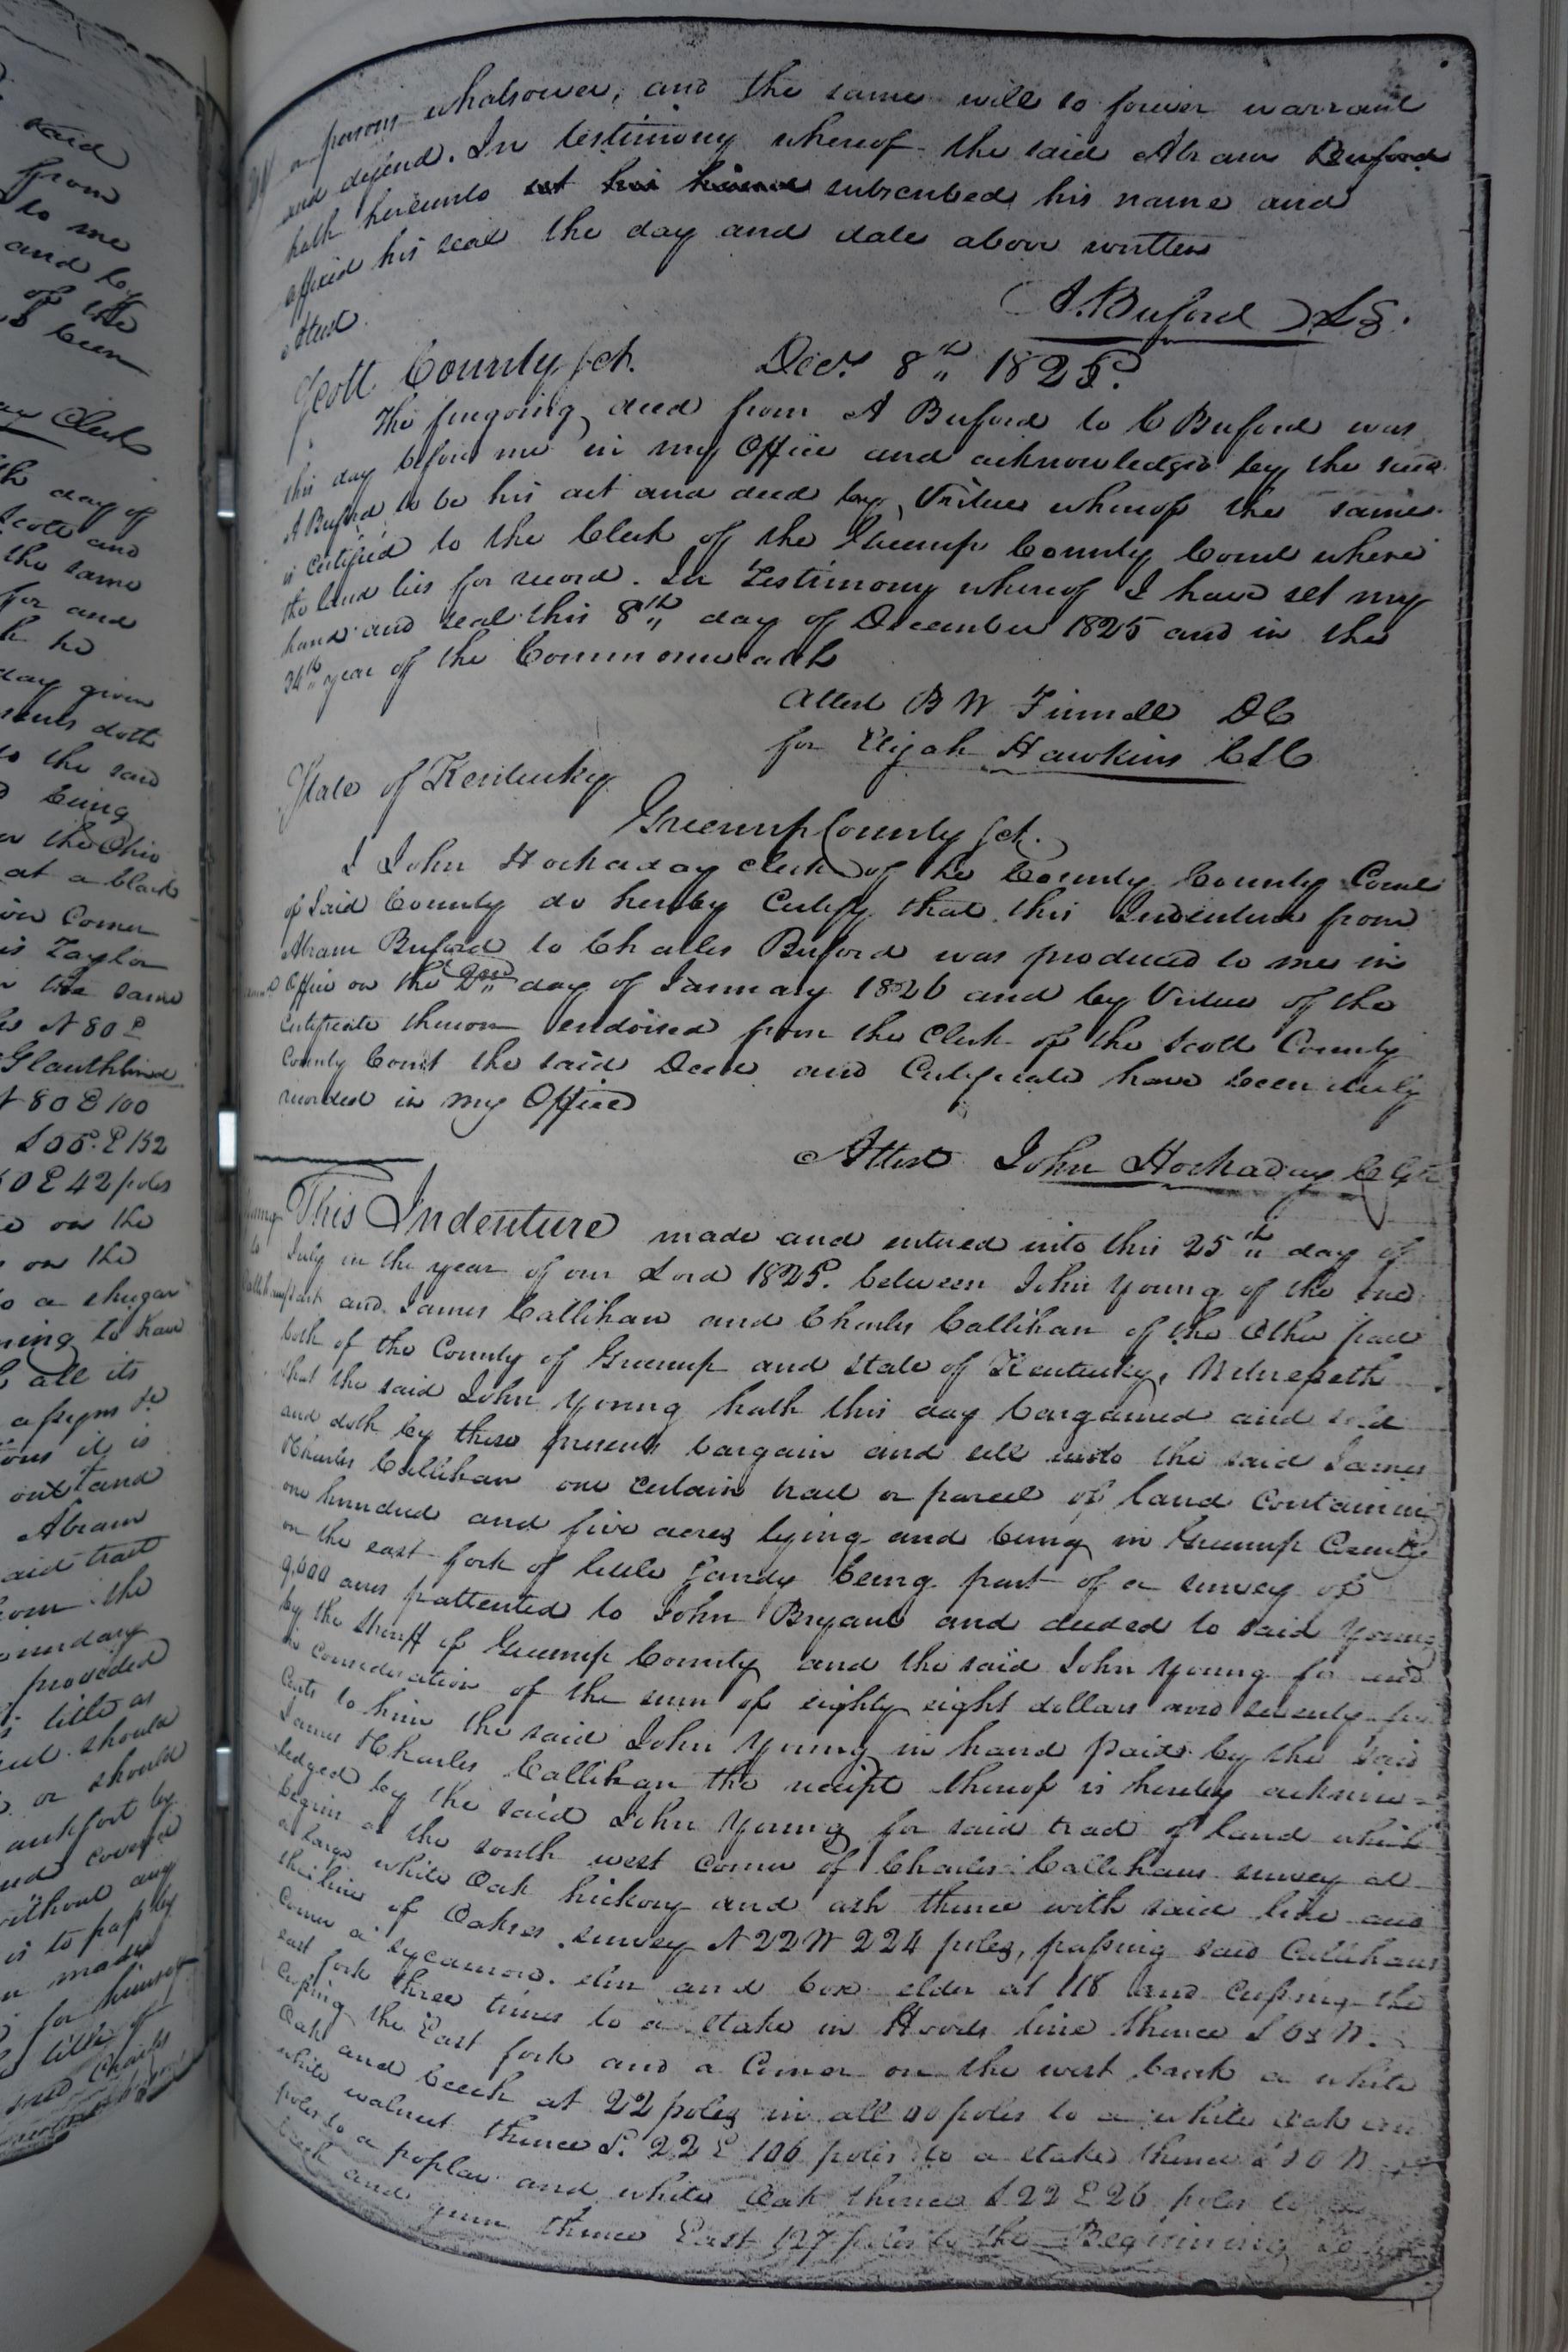 said
from
to me
and by
of the
been
Clerk
day of
Scott and
the same
for and
he
day given
doth
to the said
being
the Ohio
at a black
Corner
is Taylor
the same
N 80 E
N 80 E 100
E 152
E 42 poles
on the
on the
to a shugar
to have
all its
assigns
it is
out and
Abram
said tract
from the
boundary
provided
title as
should
or should
by
without any
is to pass by
made
for himself
title of
said Charles
or persons whatsoever, and the same will so forever warrant
and defend. In testimony whereof the said Abram Buford
hath hereunto set his hand subscribed his name and
affixed his seal the day and date above written
Attest
A. Buford LS.
Scott County sct. Decr. 8th 1825.
The foregoing deed from A Buford to C Buford was
this day before me in my Office and acknowledged by the said
A Buford to be his act and deed by Virtue whereof the same
is Certified to the Clerk of the Greenup County Court where
the land lies for record. In Testimony whereof I have set my
hand and seal this 8th day of December 1825 and in the
34th year of the Commonwealth
Attest B W Finnell DC
for Elijah Hawkins CSC
State of Kentucky
Greenup County sct.
I John Hockaday Clerk of the County County Court
of Said County do hereby Certify that this Indenture from
Abram Buford to Charles Buford was produced to me in
Office on the 2nd day of January 1826 and by Virtue of the
Certificate thereon endorsed from the Clerk of the Scott County
County Court the said Deed and Certificate have been duly
recorded in my Office
Attest John Hockaday
This Indenture made and entered into this 25th day of
July in the year of our Lord 1825. between John Young of the one
part and James Callihan and Charles Callihan of the Other part
both of the County of Greenup and State of Kentucky, Witnesseth
that the said John Young hath this day bargained and sold
and doth by these presents bargain and sell unto the said James
& Charles Callihan one certain tract or parcel of land Containing
one hundred and five acres lying and being in Greenup County
on the east fork of little Sandy being part of a survey of
9,600 acres pattented to John Bryant and deeded to said Young
by the Sheriff of Greenup County and the said John Young for and
in consideration of the sum of eighty eight dollars and seventy five
Cents to him the said John Young in hand paid by the said
James & Charles Callihan the receipt thereof is hereby acknow=
ledged by the said John Young for said tract of land which
begins at the south west corner of Charles Callihans survey at
a large white Oak hickory and ash thence with said line and
the line of Oakses survey N 22 W 224 poles, passing said Callihans
Corner a sycamore elm and box elder at 118 and crossing the
east fork three times to a stake in Hoods line thence S 68 W
crossing the East fork and a Corner on the west bank a white
Oak and beech at 22 poles in all 80 poles to a white Oak and
white walnut thence S. 22 E 106 poles to a stake thence
poles to a poplar and white Oak thence S 22 E 26 poles to
beech and gum thence East 127 poles to the Beginning